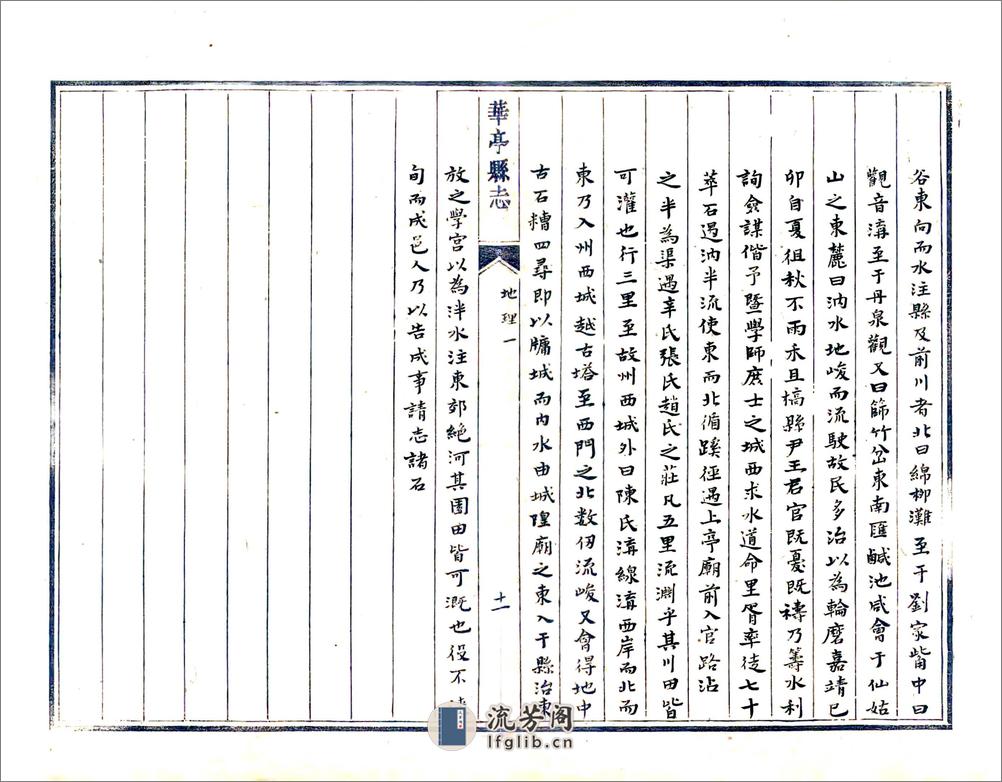 谷東向而水注縣及前川者北曰綿柳灘至于劉家嘴中曰
觀音溝至于丹泉觀又曰篩竹岔東南匯鹹池咸會于仙姑
山之東麓曰汭水地峻而流駛故民多治以為輪磨嘉靖己
卯自夏徂秋不雨禾且槁縣尹王君官既憂既禱乃籌水利
詢僉謀偕予暨學師庶士之城西求水道命里胥率徒七十
萃石遏汭半流使東而北循蹊徑過上亭廟前入官路沾
之半為渠過辛氏張氏趙氏之莊凡五里流淵乎其川田皆
可灌也行三里至故州西城外曰陳氏溝線溝西岸而北而
東乃入州西城越古塔至西門之北數仞流峻又會得地中
古石糟四尋即以牗城而內水由城隍廟之東入于縣治東
華亭縣志
地理一
十一
放之學宮以為泮水注東郊絶河其園田皆可溉也役不
旬而成邑人乃以告成事請志諸石
流芳阁
lfglib.cn